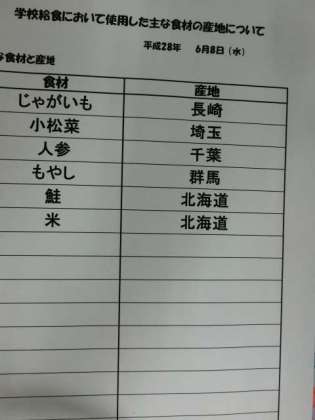 学校給食において使用した主な食材の産地について
平成28年 6月8日（水）
な食材と産地
食材 産地
じゃがいも 長崎
小松菜 埼玉
人参 千葉
もやし 群馬
鮭 北海道
米 北海道